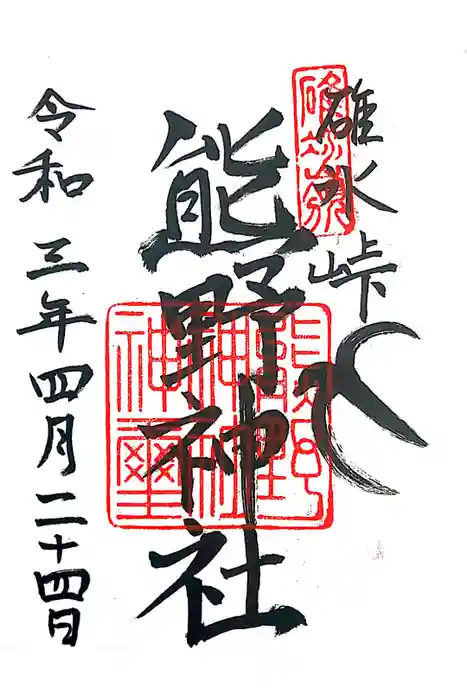 碓氷峠
熊野神社
令和三年四月二十四日